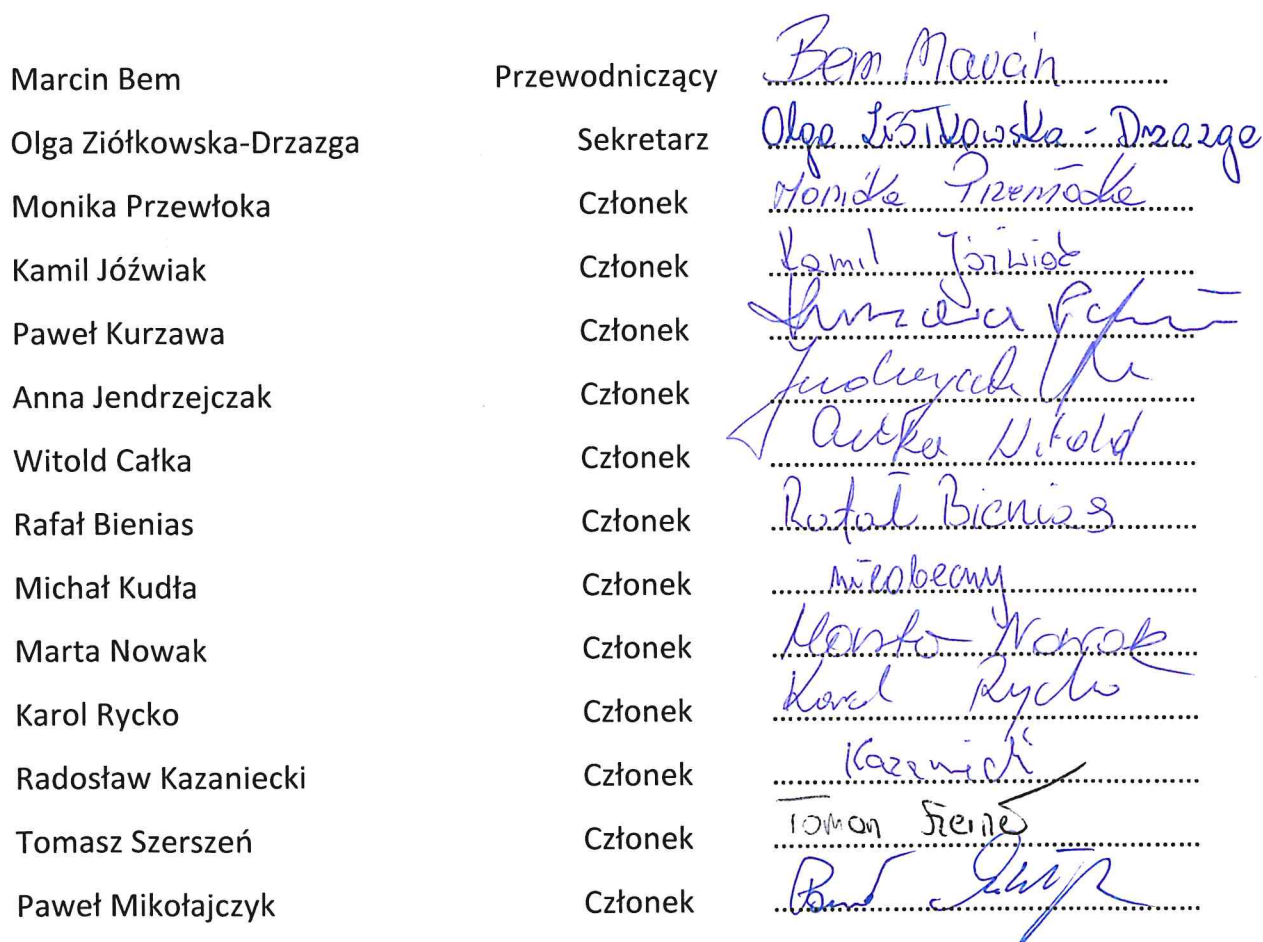 Marcin Bem Przewodniczący Bem Marcin
Olga Ziółkowska-Drzazga Sekretarz Olga Ziółkowska-Drzazga
Monika Przewłoka Członek Monika Przewłoka
Kamil Jóźwiak Członek Kamil Jóźwiak
Paweł Kurzawa Członek Kurzawa
Anna Jendrzejczak Członek
Witold Całka Członek Całka Witold
Rafał Bienias Członek Rafał Bienias
Michał Kudła Członek nieobecny
Marta Nowak Członek Marta Nowak
Karol Rycko Członek Karol Rycko
Radosław Kazaniecki Członek
Tomasz Szerszeń Członek
Paweł Mikołajczyk Członek